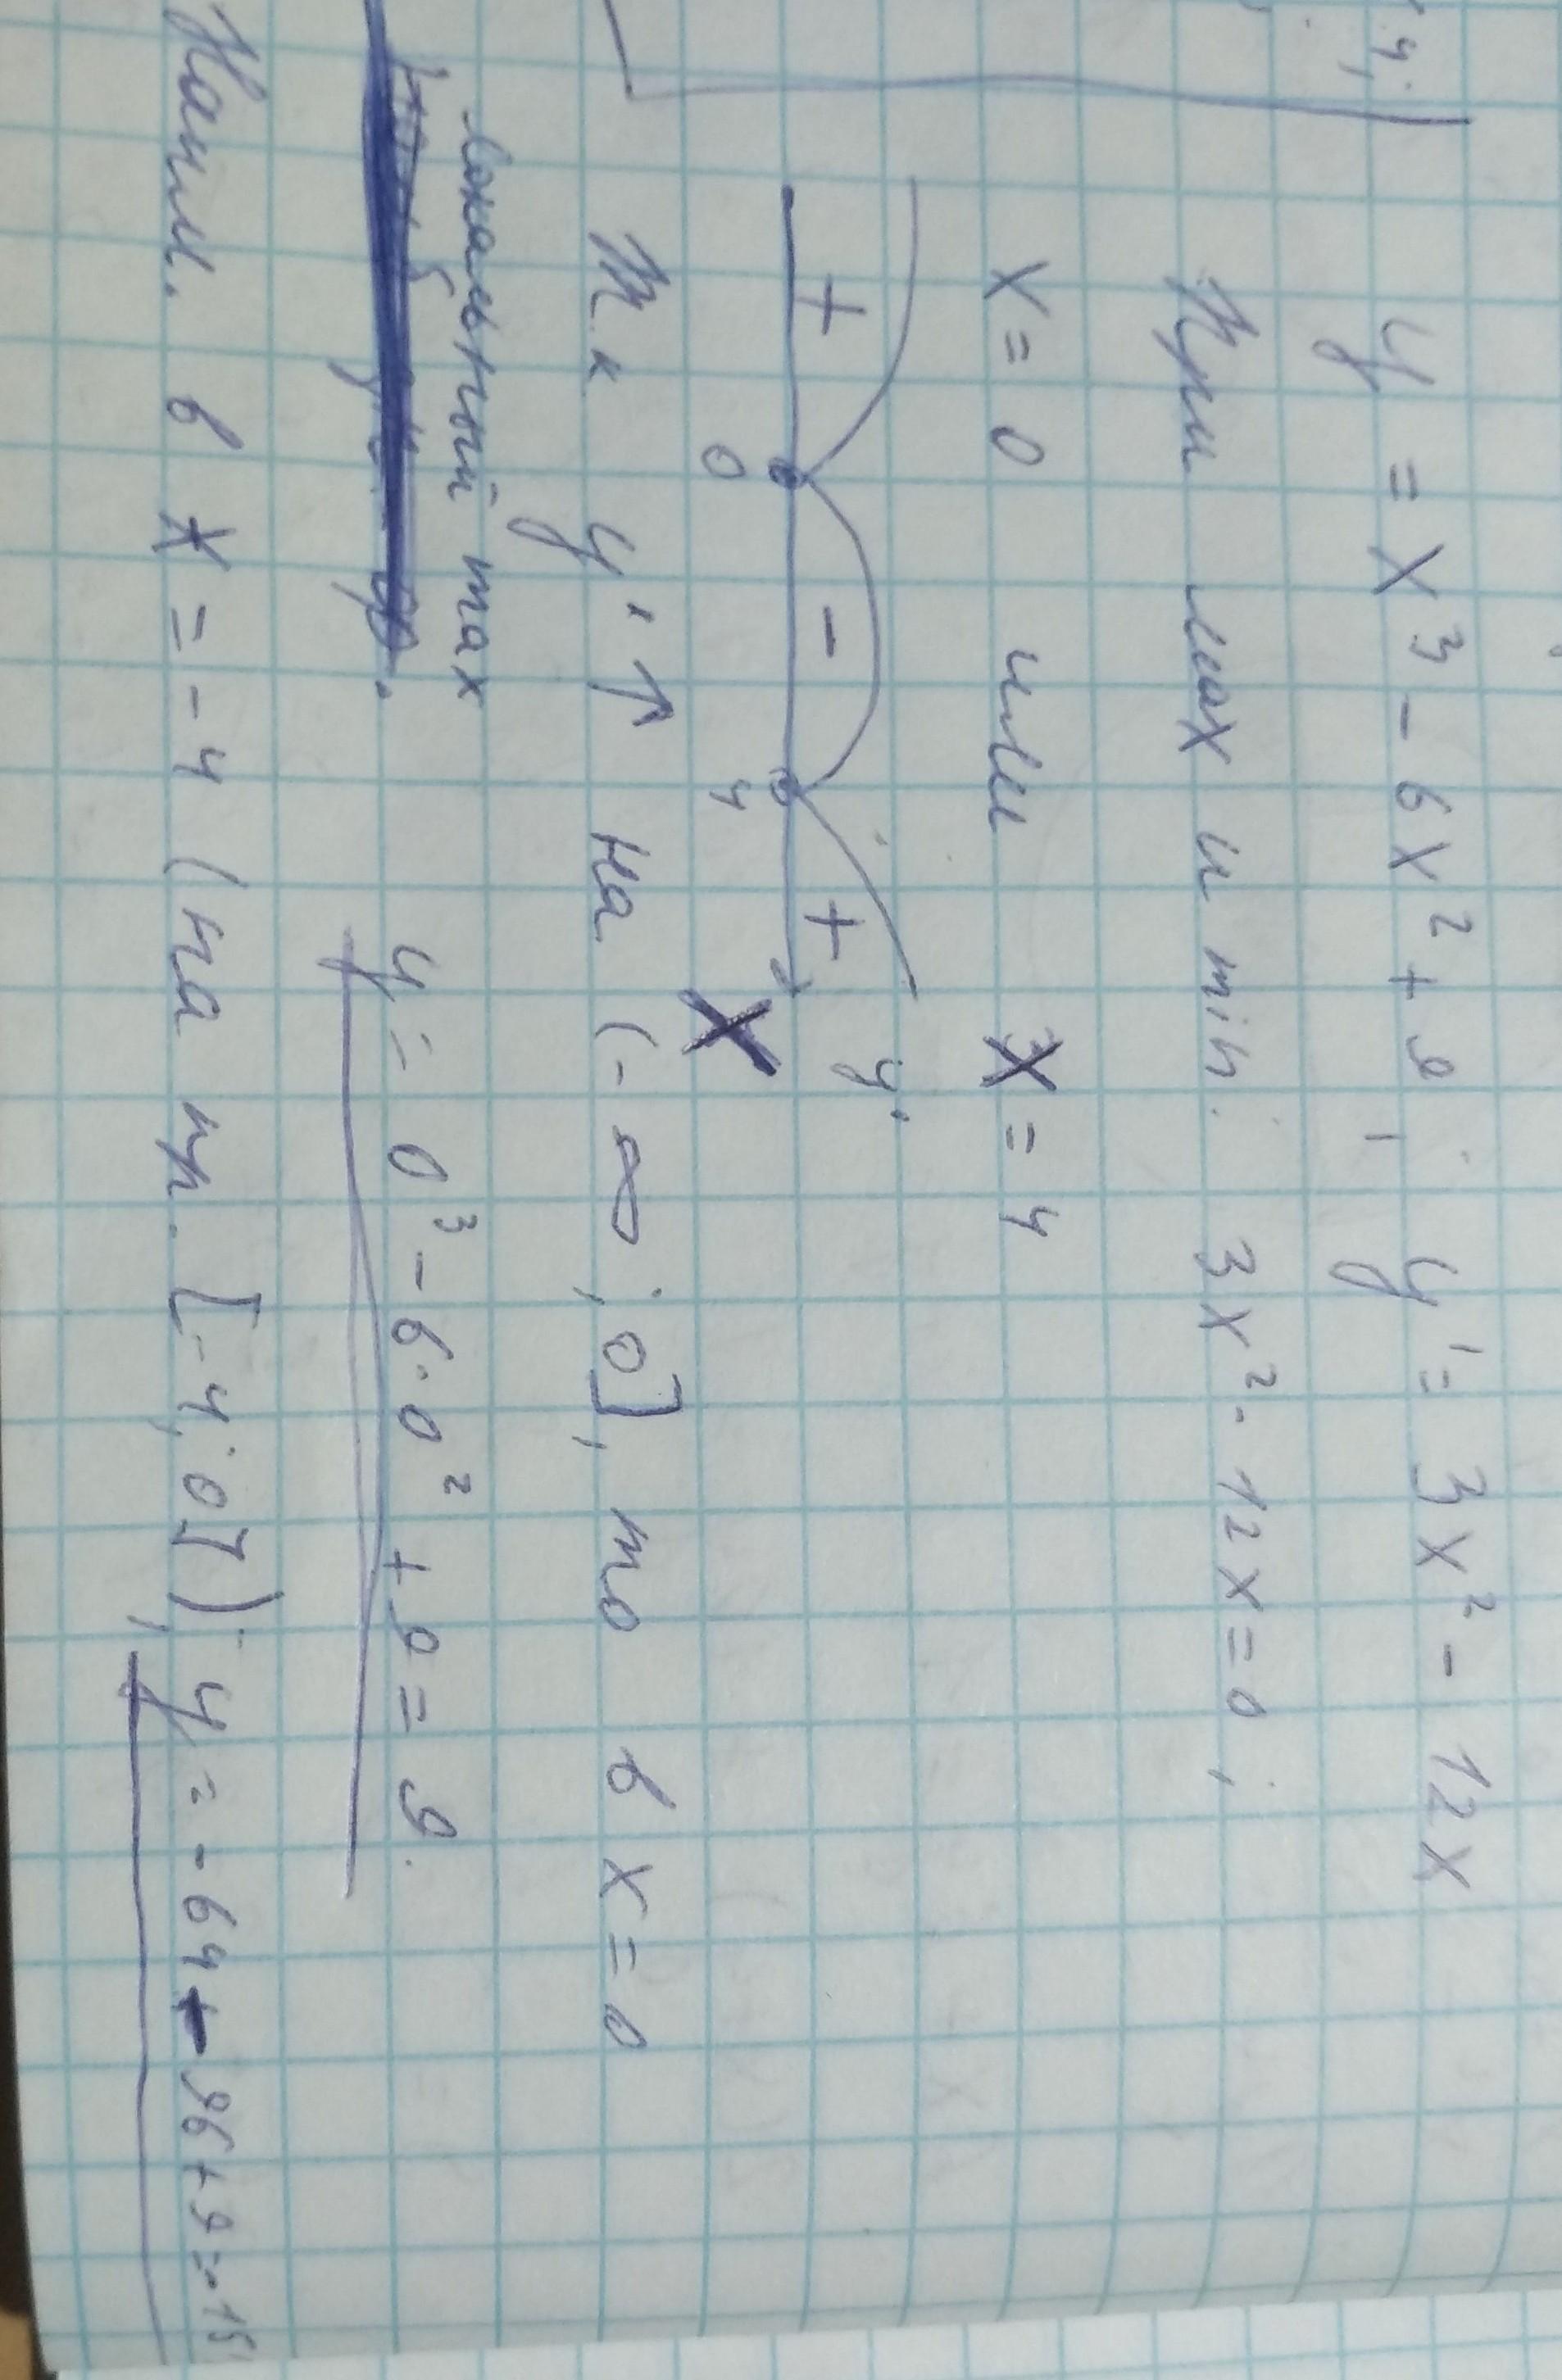 y = x³ - 6x² + 9, y' = 3x² - 12x
При max и min. 3x² - 12x = 0;
x = 0 или x = 4
+ - + y'
0 4 x
Т.к y' ↑ на (-∞; 0], то в x = 0
локальный max
y = 0³ - 6·0² + 9 = 9.
Наим. в x = -4 (на пр. [-4; 0]), y = -64 - 96 + 9 = -15